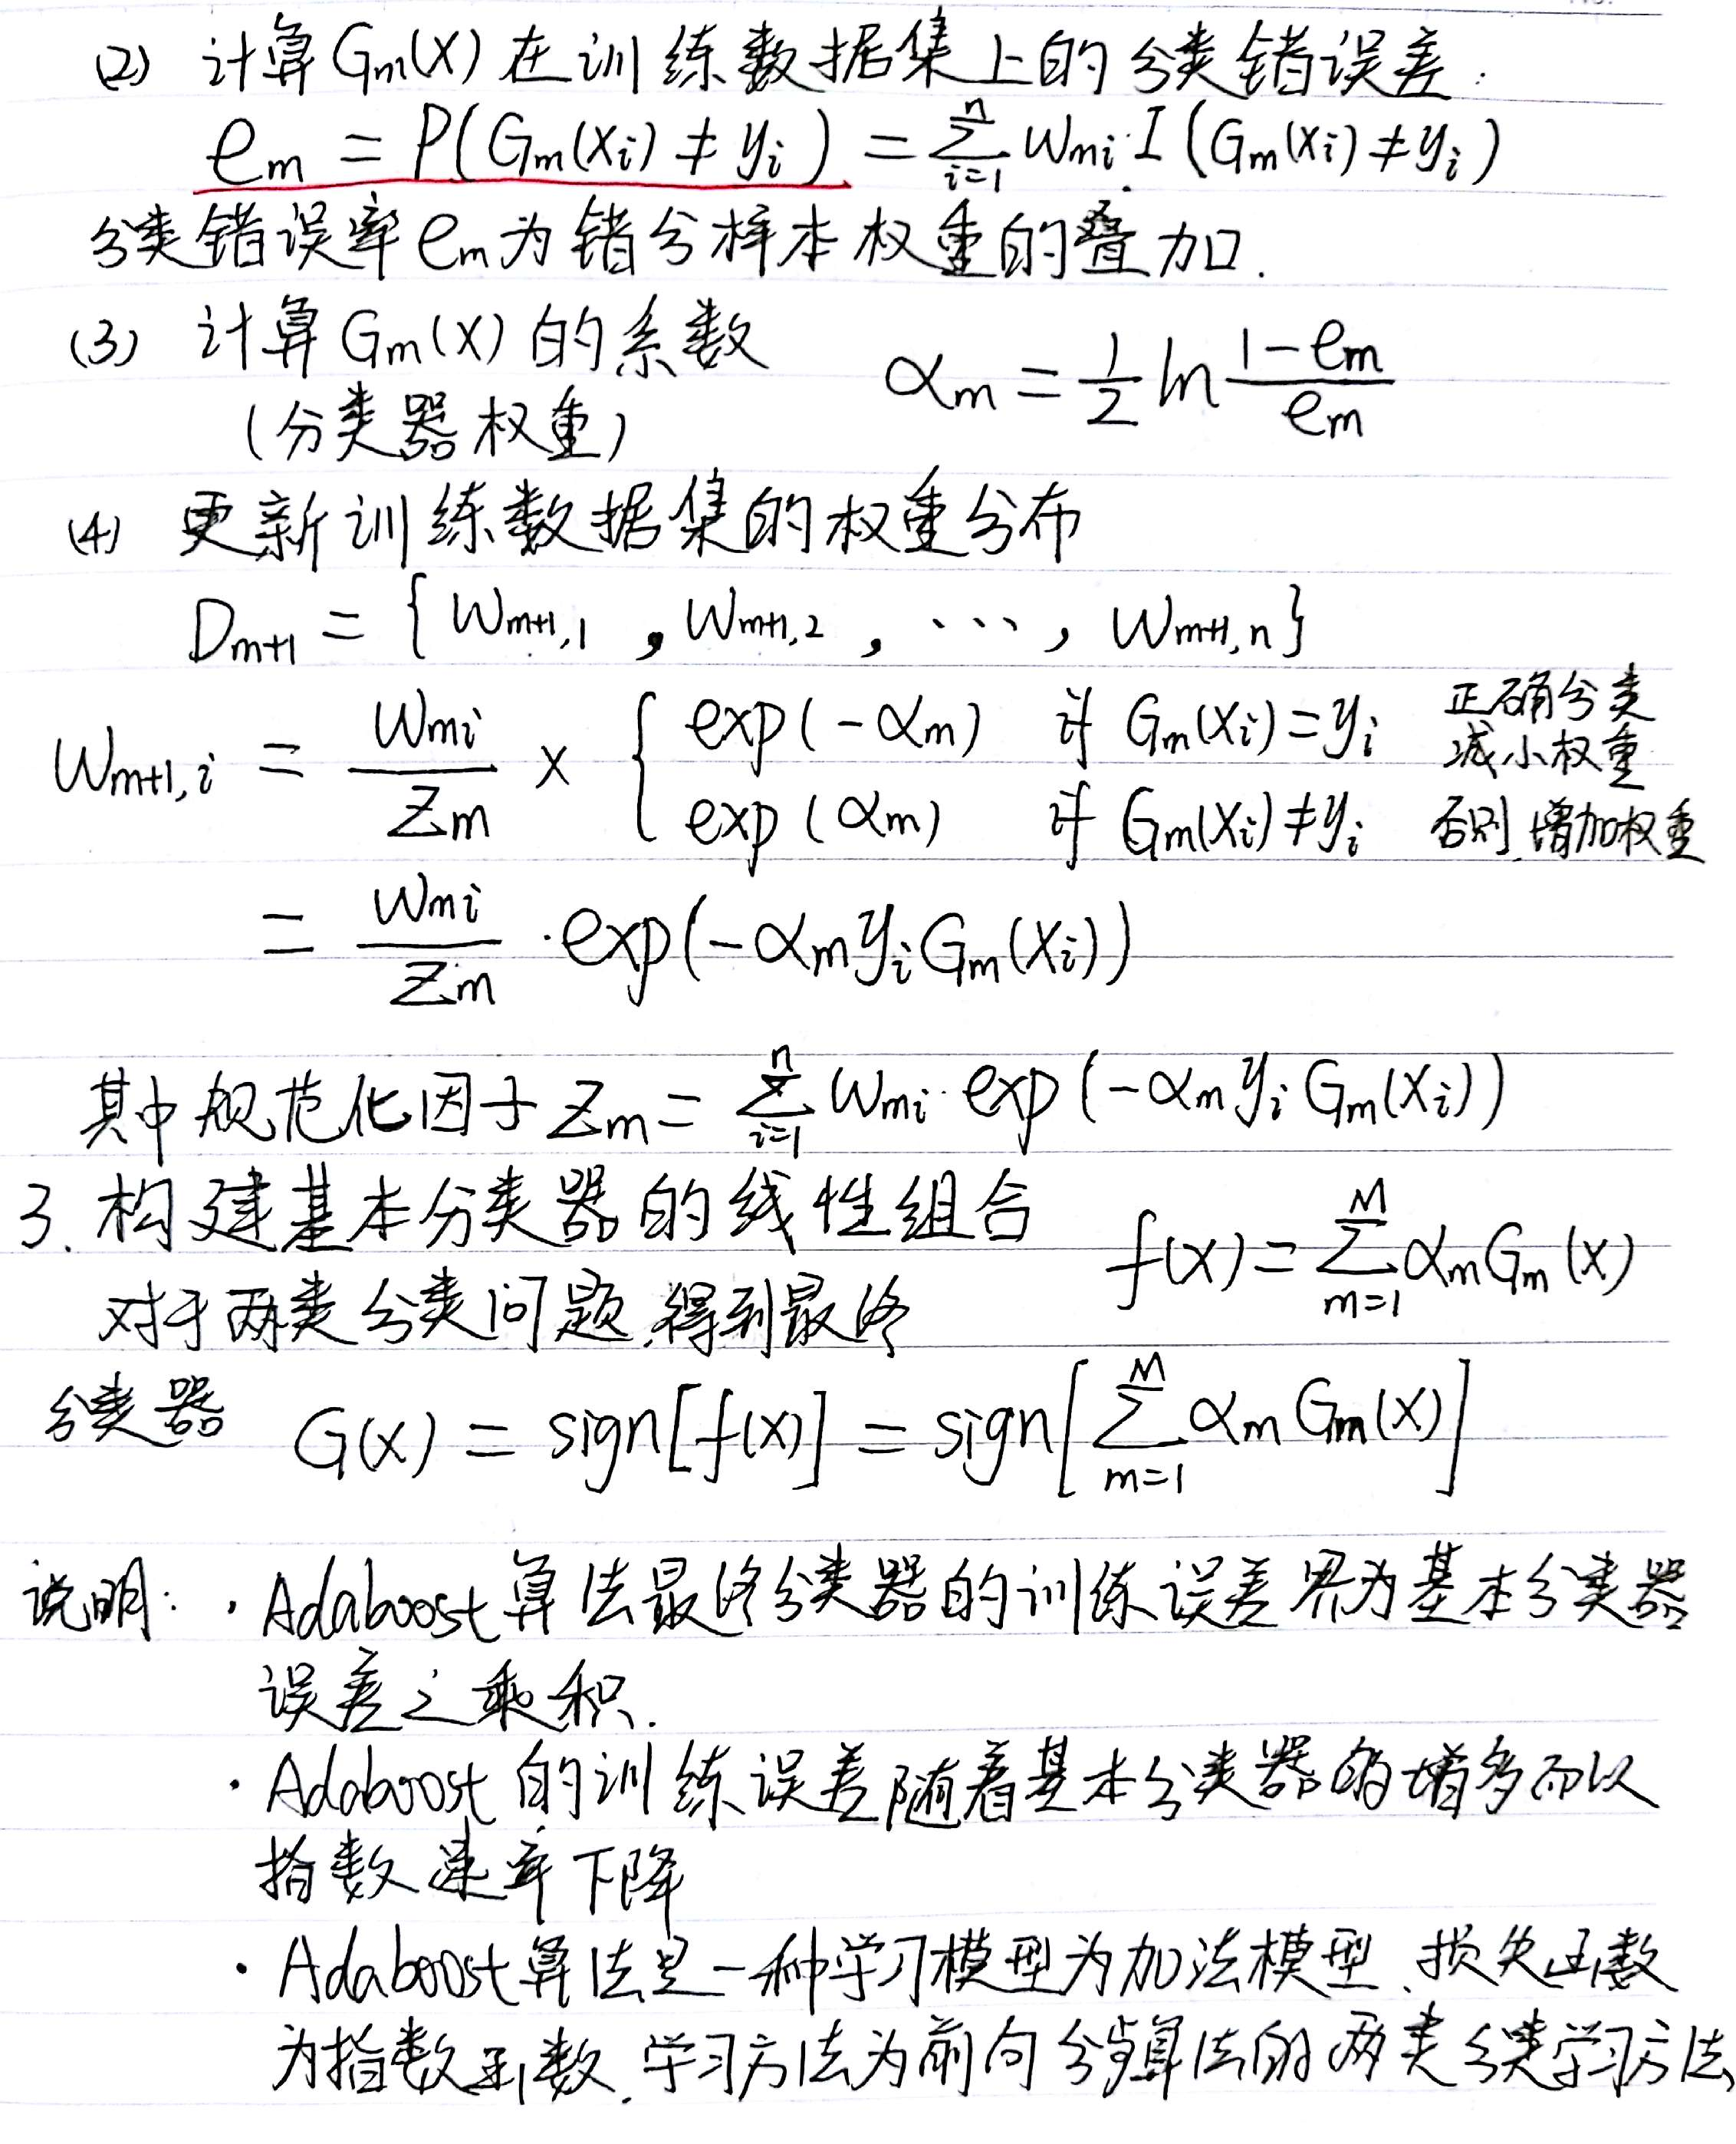 (2) 计算Gm(x)在训练数据集上的分类错误差:
em = P(Gm(xi) ≠ yi) = ∑_{i=1}^{n} wmi·I(Gm(xi)≠yi)
分类错误率em为错分样本权重的叠加.
(3) 计算Gm(x)的系数 αm = 1/2 ln (1-em)/em
(分类器权重)
(4) 更新训练数据集的权重分布
Dm+1 = {wm+1,1, wm+1,2, ⋯, wm+1,n}
wm+1,i = wmi/Zm × { exp(-αm) Gm(xi)=yi 正确分类 减小权重
exp(αm) Gm(xi)≠yi 否则,增加权重
= wmi/Zm ·exp(-αm yi Gm(xi))
其中规范化因子 Zm = ∑_{i=1}^{n} wmi·exp(-αm yi Gm(xi))
3. 构建基本分类器的线性组合 f(x) = ∑_{m=1}^{M} αm Gm(x)
对于两类分类问题,得到最终
分类器 G(x) = sign[f(x)] = sign[∑_{m=1}^{M} αm Gm(x)]
说明: · Adaboost算法最终分类器的训练误差界为基本分类器
误差之乘积.
· Adaboost的训练误差随着基本分类器的增多而以
指数速率下降
· Adaboost算法是一种学习模型为加法模型、损失函数
为指数函数、学习方法为前向分步算法的两类分类学习方法